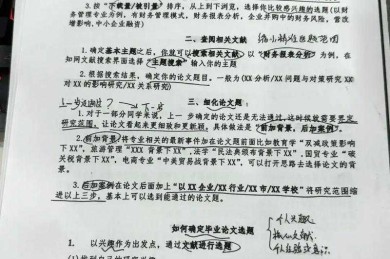 3. 按“下载量/被引量”排序，从上到下浏览，选择你比较感兴趣的选题（以财
务管理专业为例，有财务管理模式，财务报表分析，企业并购中的财务风险，营改
增影响，中小企业融资）
二、查阅相关文献 缩小精准选题范围
1. 确定基本主题之后，你就可以搜索相关文献了 以“财务报表分析”为例，在
知网文献搜索界面选择“主题搜索”输入你的主题
2. 根据搜索结果，确定你的论文题目。一般为（XX 分析/XX 问题与对策研究 XX
对 XX 的影响研究/XX 关系研究）
三、细化论文题：
1. 对于一部分同学来说，上一步确定的论文还是无法通过，这时候就需要界定
研究范围，让论文看起来更细致和更新颖，具体做法是“前加背景，后加案例”。
2. 前加背景/将专业相关的最新事件加在论文题前面比如教育学“双减政策影响
下 XX”，旅游管理“XXX 背景下 XX”，法学“民法典颁布背景下 XX”，国贸专业“碳
关税背景下 XX”，电商专业“中美贸易战背景下 XX”，可以打开思路去选择论文的背
景。
3. 后加案例在论文后面加上“以 XX 企业/XX 行业/XX 市/XX 学校”将研究范围缩
进以上三步，基本上可以选到能通过的论文题。
如何确定毕业论文选题
1. 以兴趣作为出发点，通过文献进行选题